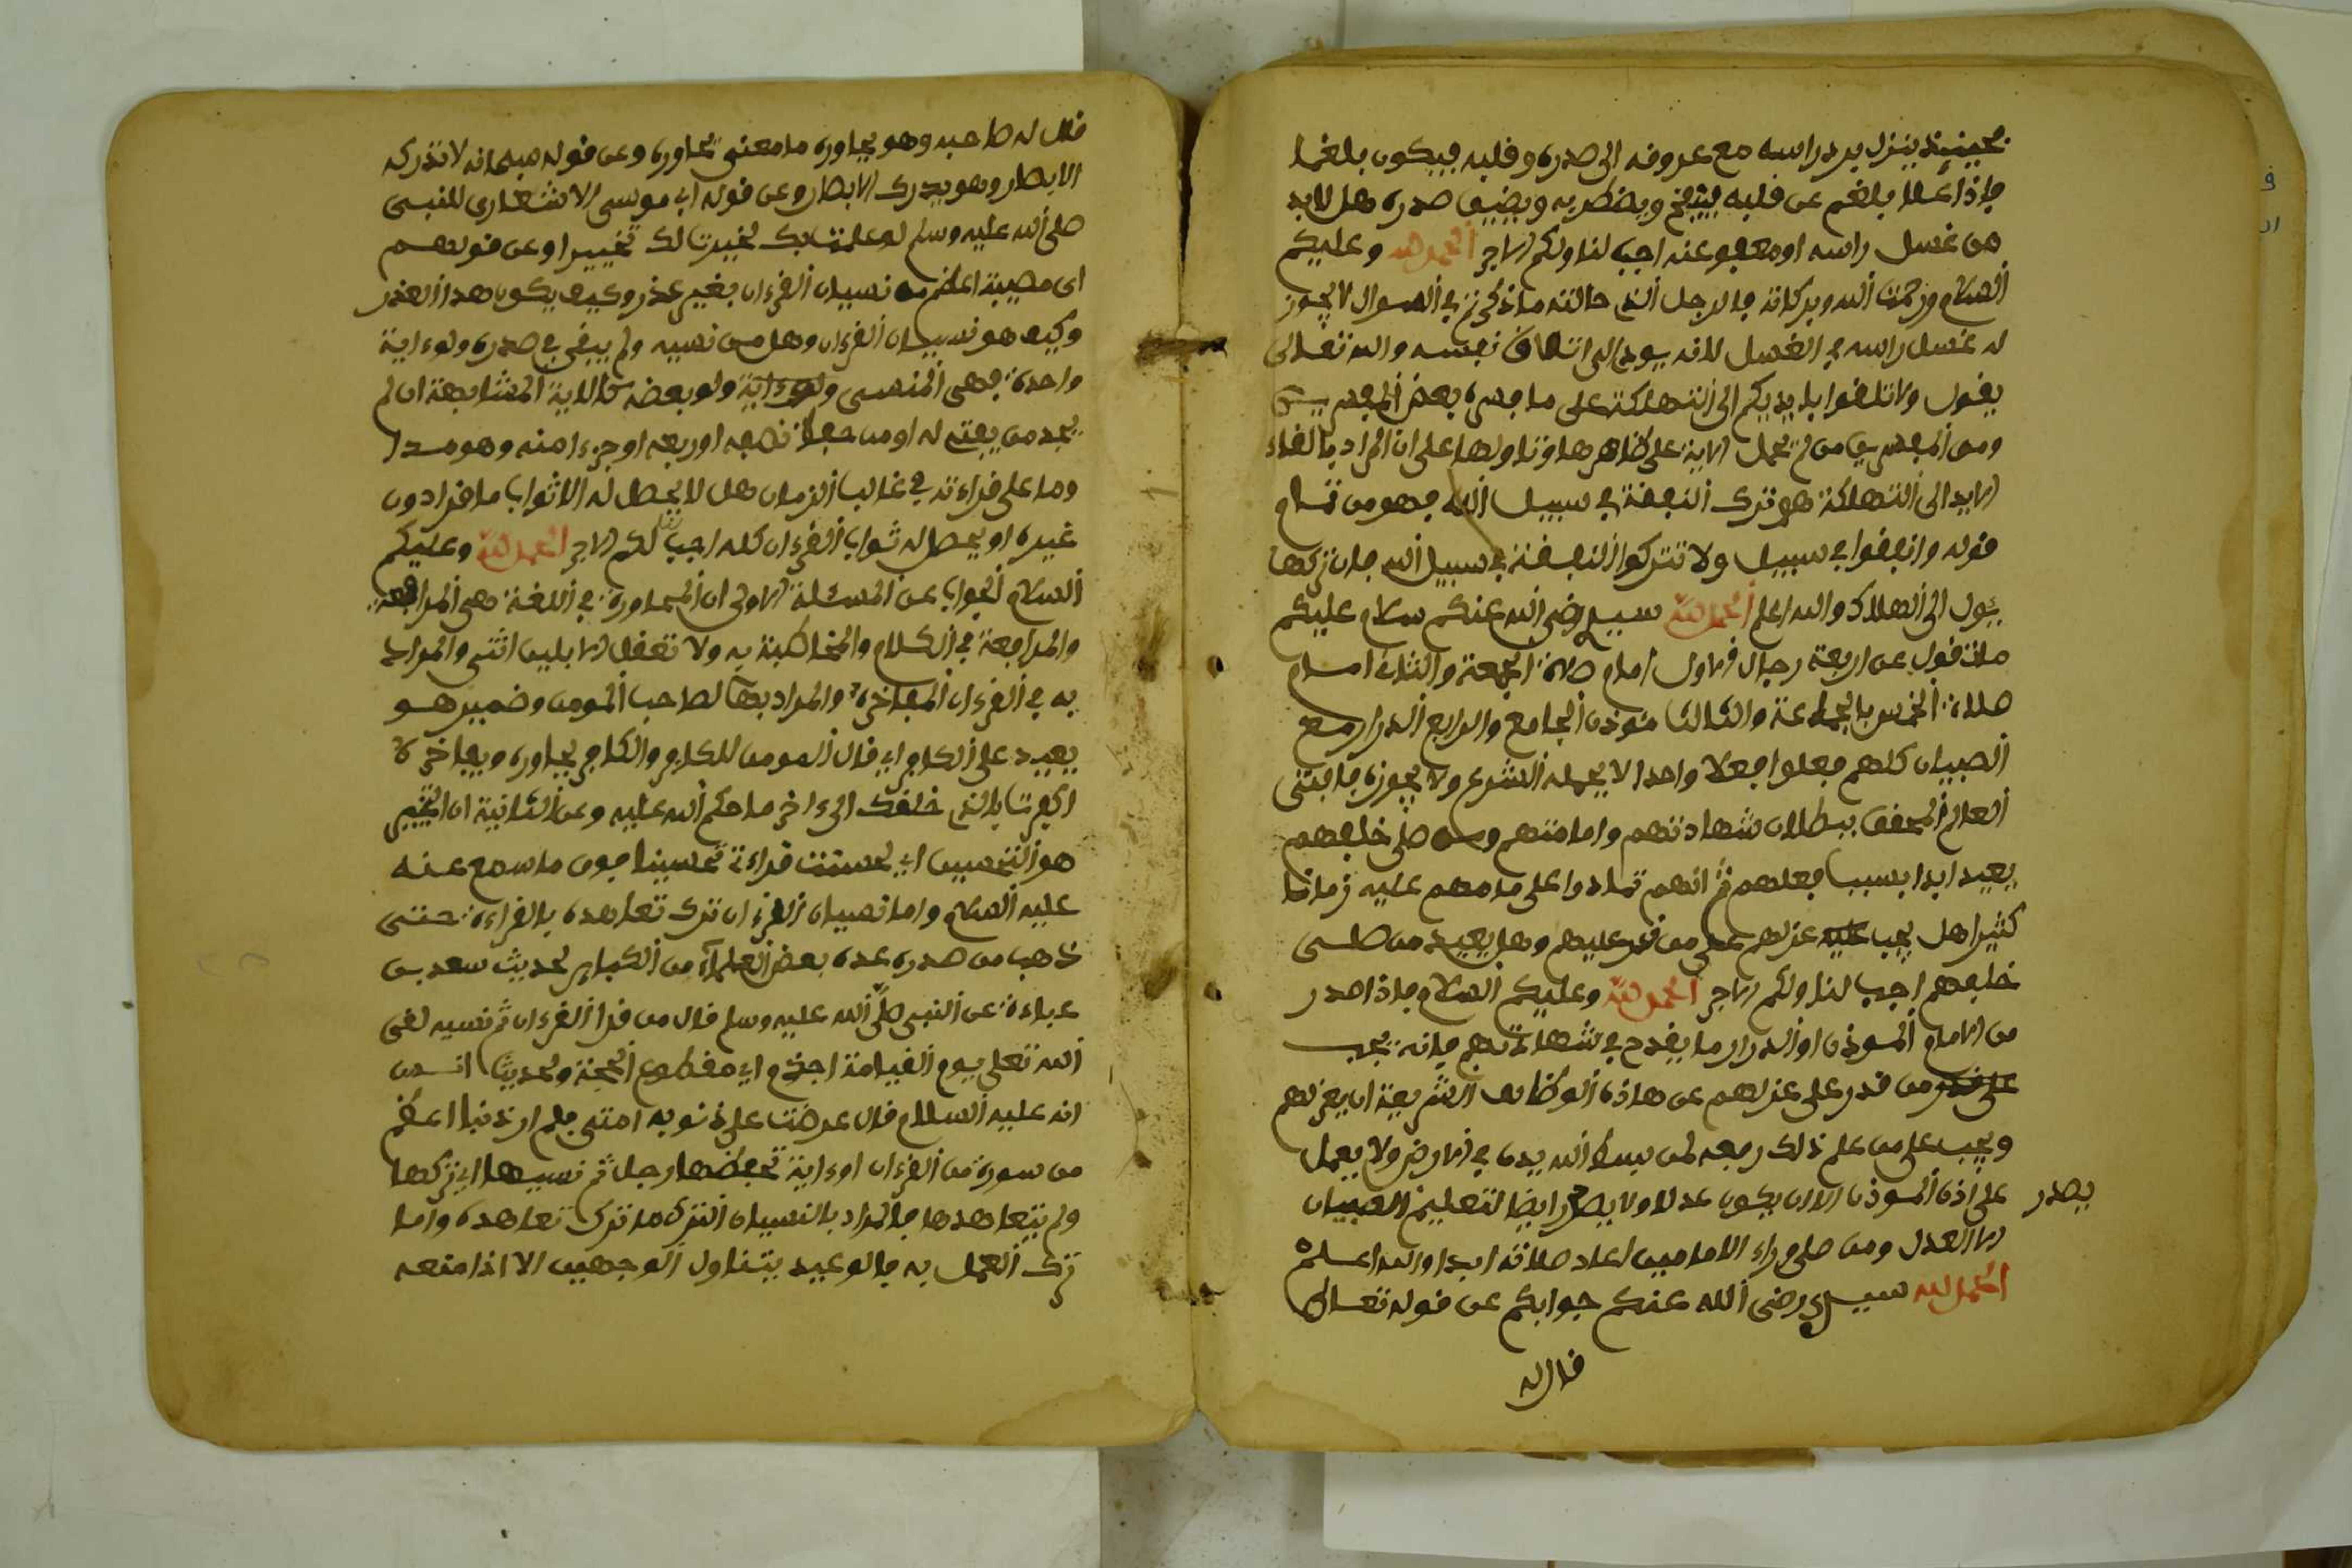 فحينئذ ينزل برد راسه مع عروفه الى صدره وقلبه فيكون بلغما
فإذا علا بلغم عن قلبه ويضطرب ويضيق صدره هل لابد
من غسل راسه او معفو عنه اجب لنا ولكم الاجر الحمد لله وعليكم
السلام ورحمت الله وبركاته فالرجل الذي حالته ما ذكرتم في السوال لا يجوز
له غسل راسه في الغسل لانه يودي الى اتلاف نفسه والله تعالى
يقول ولا تلقوا بايديكم الى التهلكة على ما فسره بعض المفسرين
ومن المفسرين من لم يحمل الاية على ظاهرها وتاولها على ان المراد بالقاء
الايد الى التهلكة هو ترك النفقة في سبيل الله فهو من تمام
قوله وانفقوا في سبيل ولا تتركوا النفقة في سبيل الله فان تركها
يئول الى الهلاك والله اعلم الحمد لله سيدي رضي الله عنكم سلام عليكم
ما تقول عن اربعة رجال الاول امام صلاة الجمعة والثاني امام
صلاة الخمس بالجماعة والثالث مؤذن الجامع والرابع الدرار مع
الصبيان كلهم فعلوا فعلا واحدا لا يحمله الشرع ولا يجوزه فافتى
العالم المحقق ببطلان شهادتهم وامامتهم ومن صلى خلفهم
يعيد ابدا بسبب فعلهم ثم انهم تمادوا على ما هم عليه زمانا
كثيرا هل يجب عليه عزلهم على من قدر عليهم وهل يعيد من صلى
خلفهم اجب لنا ولكم الاجر الحمد لله وعليكم السلام فإذا صدر
من الامام المؤذن او الدرار ما يقدح في شهادتهم فإنه يجب
على قدر من قدر على عزلهم عن هاذه الوظائف الشريفة ان يعزلهم
ويجب على من علم ذلك رفعه لمن بسط الله يده في الارض ولا يعمل
على اذن المؤذن الا ان يكون عدلا ولا يصدر ايضا لتعليم الصبيان
يصدر
الا العدل ومن صلى وراء الامامين اعاد صلاته ابدا والله اعلم
الحمد لله سيدي رضي الله عنكم جوابكم عن قوله تعالى
قال له
قال له صاحبه وهو يحاوره ما معنى يحاوره وعن قوله سبحانه لا تدركه
الابصار وهو يدرك الابصار وعن قوله ابي موسى الاشعاري للنبي
صلى الله عليه وسلم لو علمت بك لحبرت لك تحبيرا وعن قولهم
اي مصيبة اعظم من نسيان القرءان بغير عذر وكيف يكون هذا العذر
وكيف هو نسيان القرءان وهل من نسيه ولم يبقى في صدره ولو ءاية
واحدة فهي المنسي ولو ءاية ولو بعضه كالاية المتشابهة ان لم
يجد من يفتح له او من حفظ نصفه او ربعه او جزءا منه وهو مدا
وما على قراءته في غالب الزمان هل لا يحصل له الا ثواب ما قرا دون
غيره او يحصل له ثواب القرءان كله اجب لنا لكم الاجر الحمد لله وعليكم
السلام الجواب عن المسئلة الاولى ان المحاورة في اللغة هي المراجعة
والمراجعة في الكلام والمخاطبة به ولا تعقل الا بين اثني والمراد
به في القرءان المفاخرة والمراد بها لصاحب المومن وضمير هو
يعيد على الكافر اي قال المومن للكافر والكافر يحاوره ويفاخره
اكفرت بالذي خلقك الى ءاخر ما حكم الله عليه وعن الثانية ان التحبير
هو التحسين اي لحسنت قراءته تحسينا فوق ما سمع عنه
عليه السلام واما نسيان القرءان ترك تعاهده بالقراءة حتى
ذهب من صدره عده بعض العلماء من الكباير لحديث سعد بن
عبادة عن النبي صلى الله عليه وسلم قال من قرا القرءان ثم نسيه لقي
الله تعلى يوم القيامة اجذم اي مقطوع الحجة ولحديث انس
انه عليه السلام قال عرضت علي ذنوب امتي فلم ار ذنبا اعظم
من سورة من القرءان او ءاية حفظها رجل ثم نسيها اي تركها
ولم يتعاهدها فالمراد بالنسيان الترك ما ترك تعاهده واما
ترك العمل به فالوعيد يتناول الوجهين الا اذا منعه